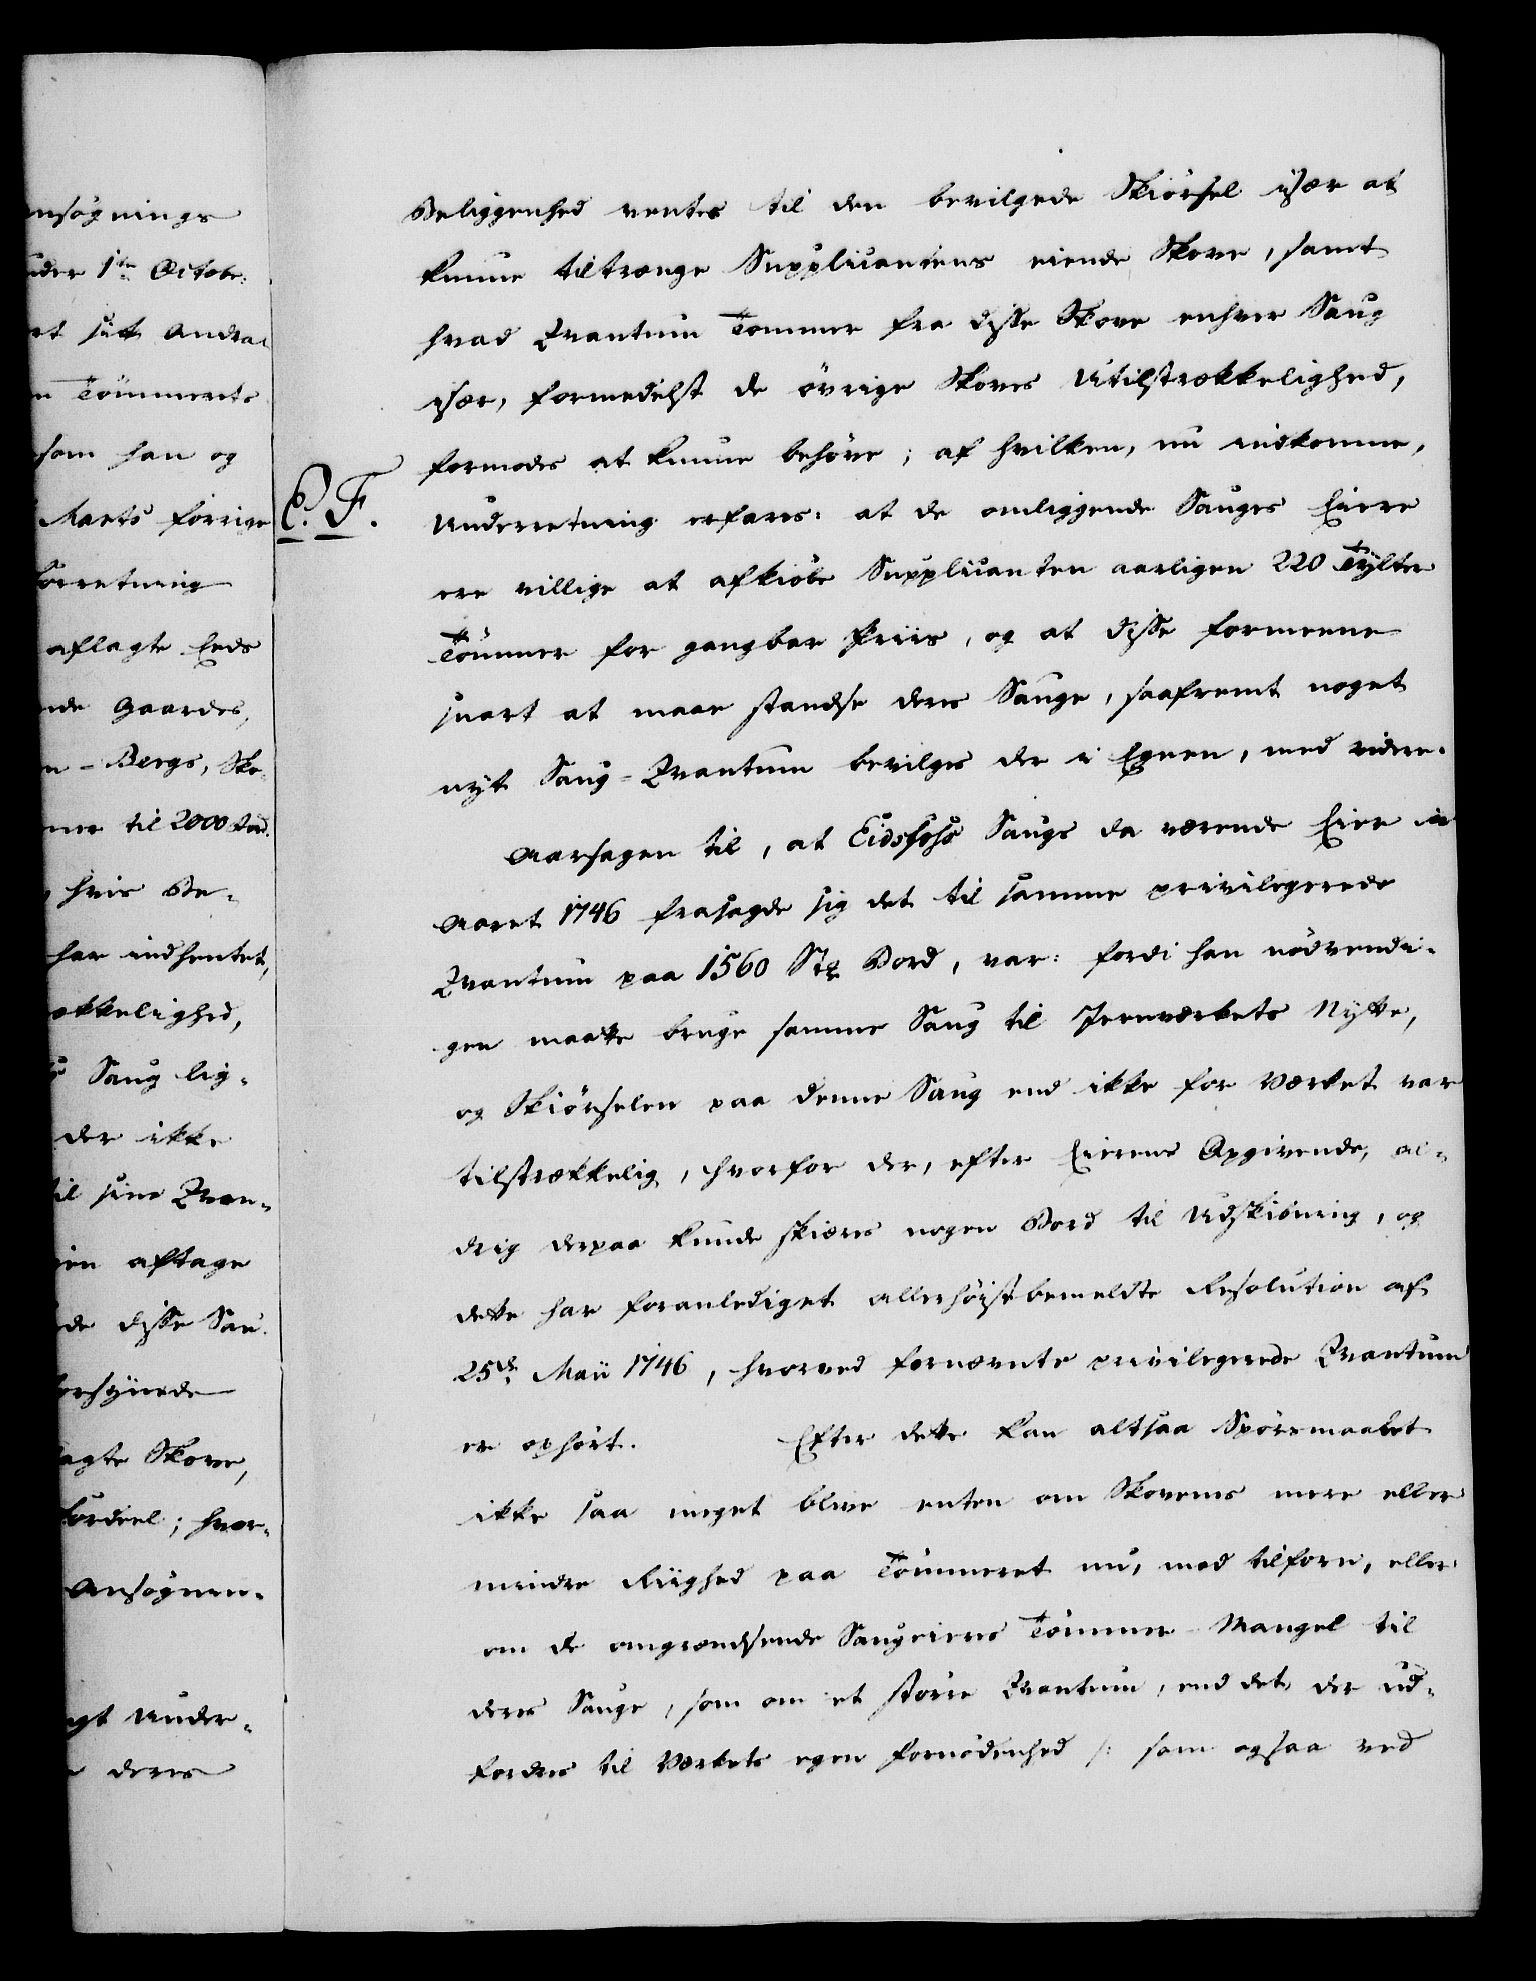 nsøgnings
nder 1te Octobr:
rt sitt Andra-
n Tømmerets
som han og
Marts forrige
Forretning
aflagte Eeds
nde Gaardes,
n - Bergs, Sko-
ner til 2000
hvis Be-
har indhentet,
ækkelighed,
Saug lig-
der ikke
til sine Qvan-
ien aftage
de disse Sau-
forsynede
lagte Skove,
Fordeel; hvor-
Ansøgnin-
gt Under-
deres
Beliggenhed ventes til den bevilgede Skiørsel især at
kunne tiltrænge Supplicantens eiende Skove, samt
hvad Qvantum Tømmer fra disse Skove enhver Saug
især, formedelst de øvrige Skoves Utilstrækkelighed,
formodes at kunne behøve; af hvilken, nu indkomne,
P. F.
Underretning erfares: at de omliggende Sauges Eiere
ere villige at afkiøbe Supplicanten aarligen 220 Tylter
Tømmer for gangbar Priis, og at disse formeene
snart at maae standse deres Sauge, saafremt noget
nyt Saug-Qvantum bevilges der i Egnen, med videre.
Aarsagen til, at Eidsfos Saugs da værende Eier in
Aaret 1746 frasagde sig det til samme privilegerede
Qvantum paa 1560 Stk Bord, var: fordi han nødvendi-
gen maatte bruge samme Saug til Jernværkets Nytte,
og Skiørselen paa denne Saug end ikke for Værket var
tilstrækkelig, hvorfor der, efter Eierens Opgivende, al-
drig derpaa kunde skiæres nogen Bord til Udskibning, og
dette har foranlediget allerhøistbemeldte Resolution af
25de Maii 1746, hvorved fornævnte privilegerede Qvantum
er ophørt. Efter dette kan altsaa Spørsmaalet
ikke saa meget blive enten om Skovens mere eller
mindre Riighed paa Tømmeret nu, mod tilforn, eller
om de omgrændsende Saugeieres Tømmer-Mangel til
deres Sauge, som om et større Qvantum, end det der ud-
fordres til Værkets egen Fornødenhed /: som ogsaa ved